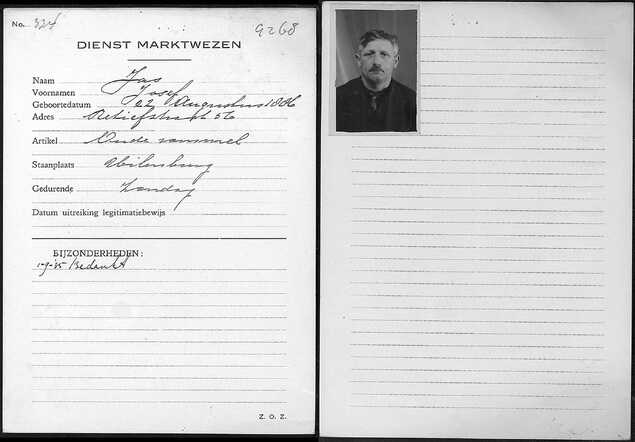 No. 324
9268
DIENST MARKTWEZEN
Naam Jas
Voornamen Josef
Geboortedatum 22 Augustus 1886
Adres Retiefstraat 56
Artikel Oude rommel
Staanplaats Uilenburg
Gedurende Zondag
Datum uitreiking legitimatiebewijs
BIJZONDERHEDEN:
1-9-35 Bedankt
Z. O. Z.